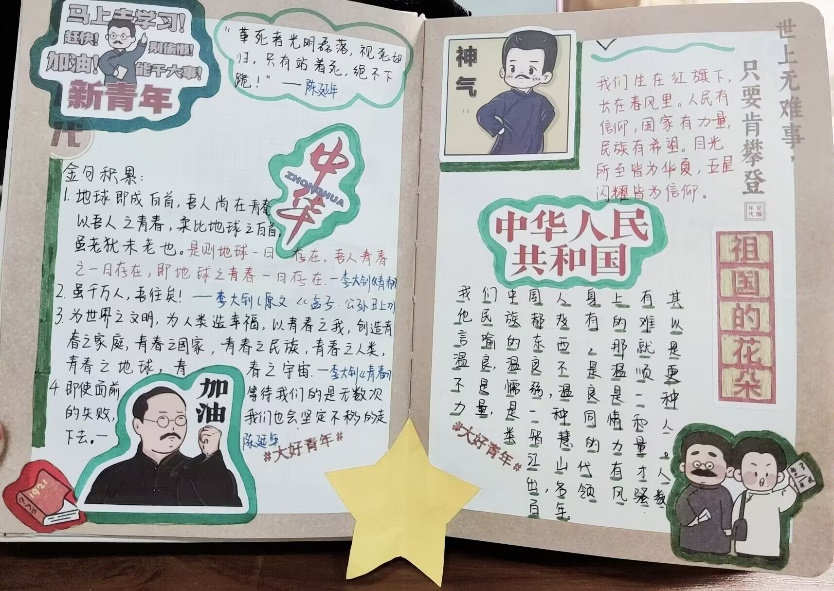 马上去学习!
赶快!
别偷懒!
加油!
能干大事!
新青年
"革死者光明磊落,视死如
归,只有站着死,绝不下
跪!" ——陈延年
中华
ZHONGHUA
金句积累:
1. 地球即成白首,吾人尚在青春
以吾人之青春,柔比地球之白首
虽老犹未老也。是则地球一日存在,吾人青春
之一日存在,即地球之青春一日存在 —李大钊《青春》
2. 虽千万人,吾往矣! ——李大钊(原文《孟子·公孙丑上》)
3. 为世界之文明,为人类造幸福,以青春之我,创造青
春之家庭,青春之国家,青春之民族,青春之人类,
青春之地球,青春之宇宙. —李大钊《青春》
4 即使面前等待我们的是无数次
的失败,我们也会坚定不移的走
下去.—陈延年
加油
#大好青年#
1921
神气
我们生在红旗下,
长在春风里。人民有
信仰,国家有力量,
民族有希望。目光
所至皆为华夏,五星
闪耀皆为信仰。
世上无难事,
只要肯攀登
中华人民
共和国
祖国的花朵
我们中国人身上有其
他民族都没有的难以
言喻的东西,那就是
温良,温良不是温顺更
不是懦弱,温良是一种
力量,是一种同情和人
#大好青年#